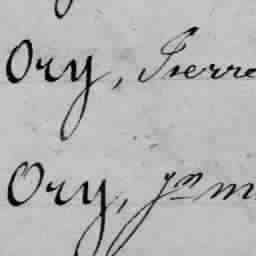 Ory, Pierre
Ory, Jn m